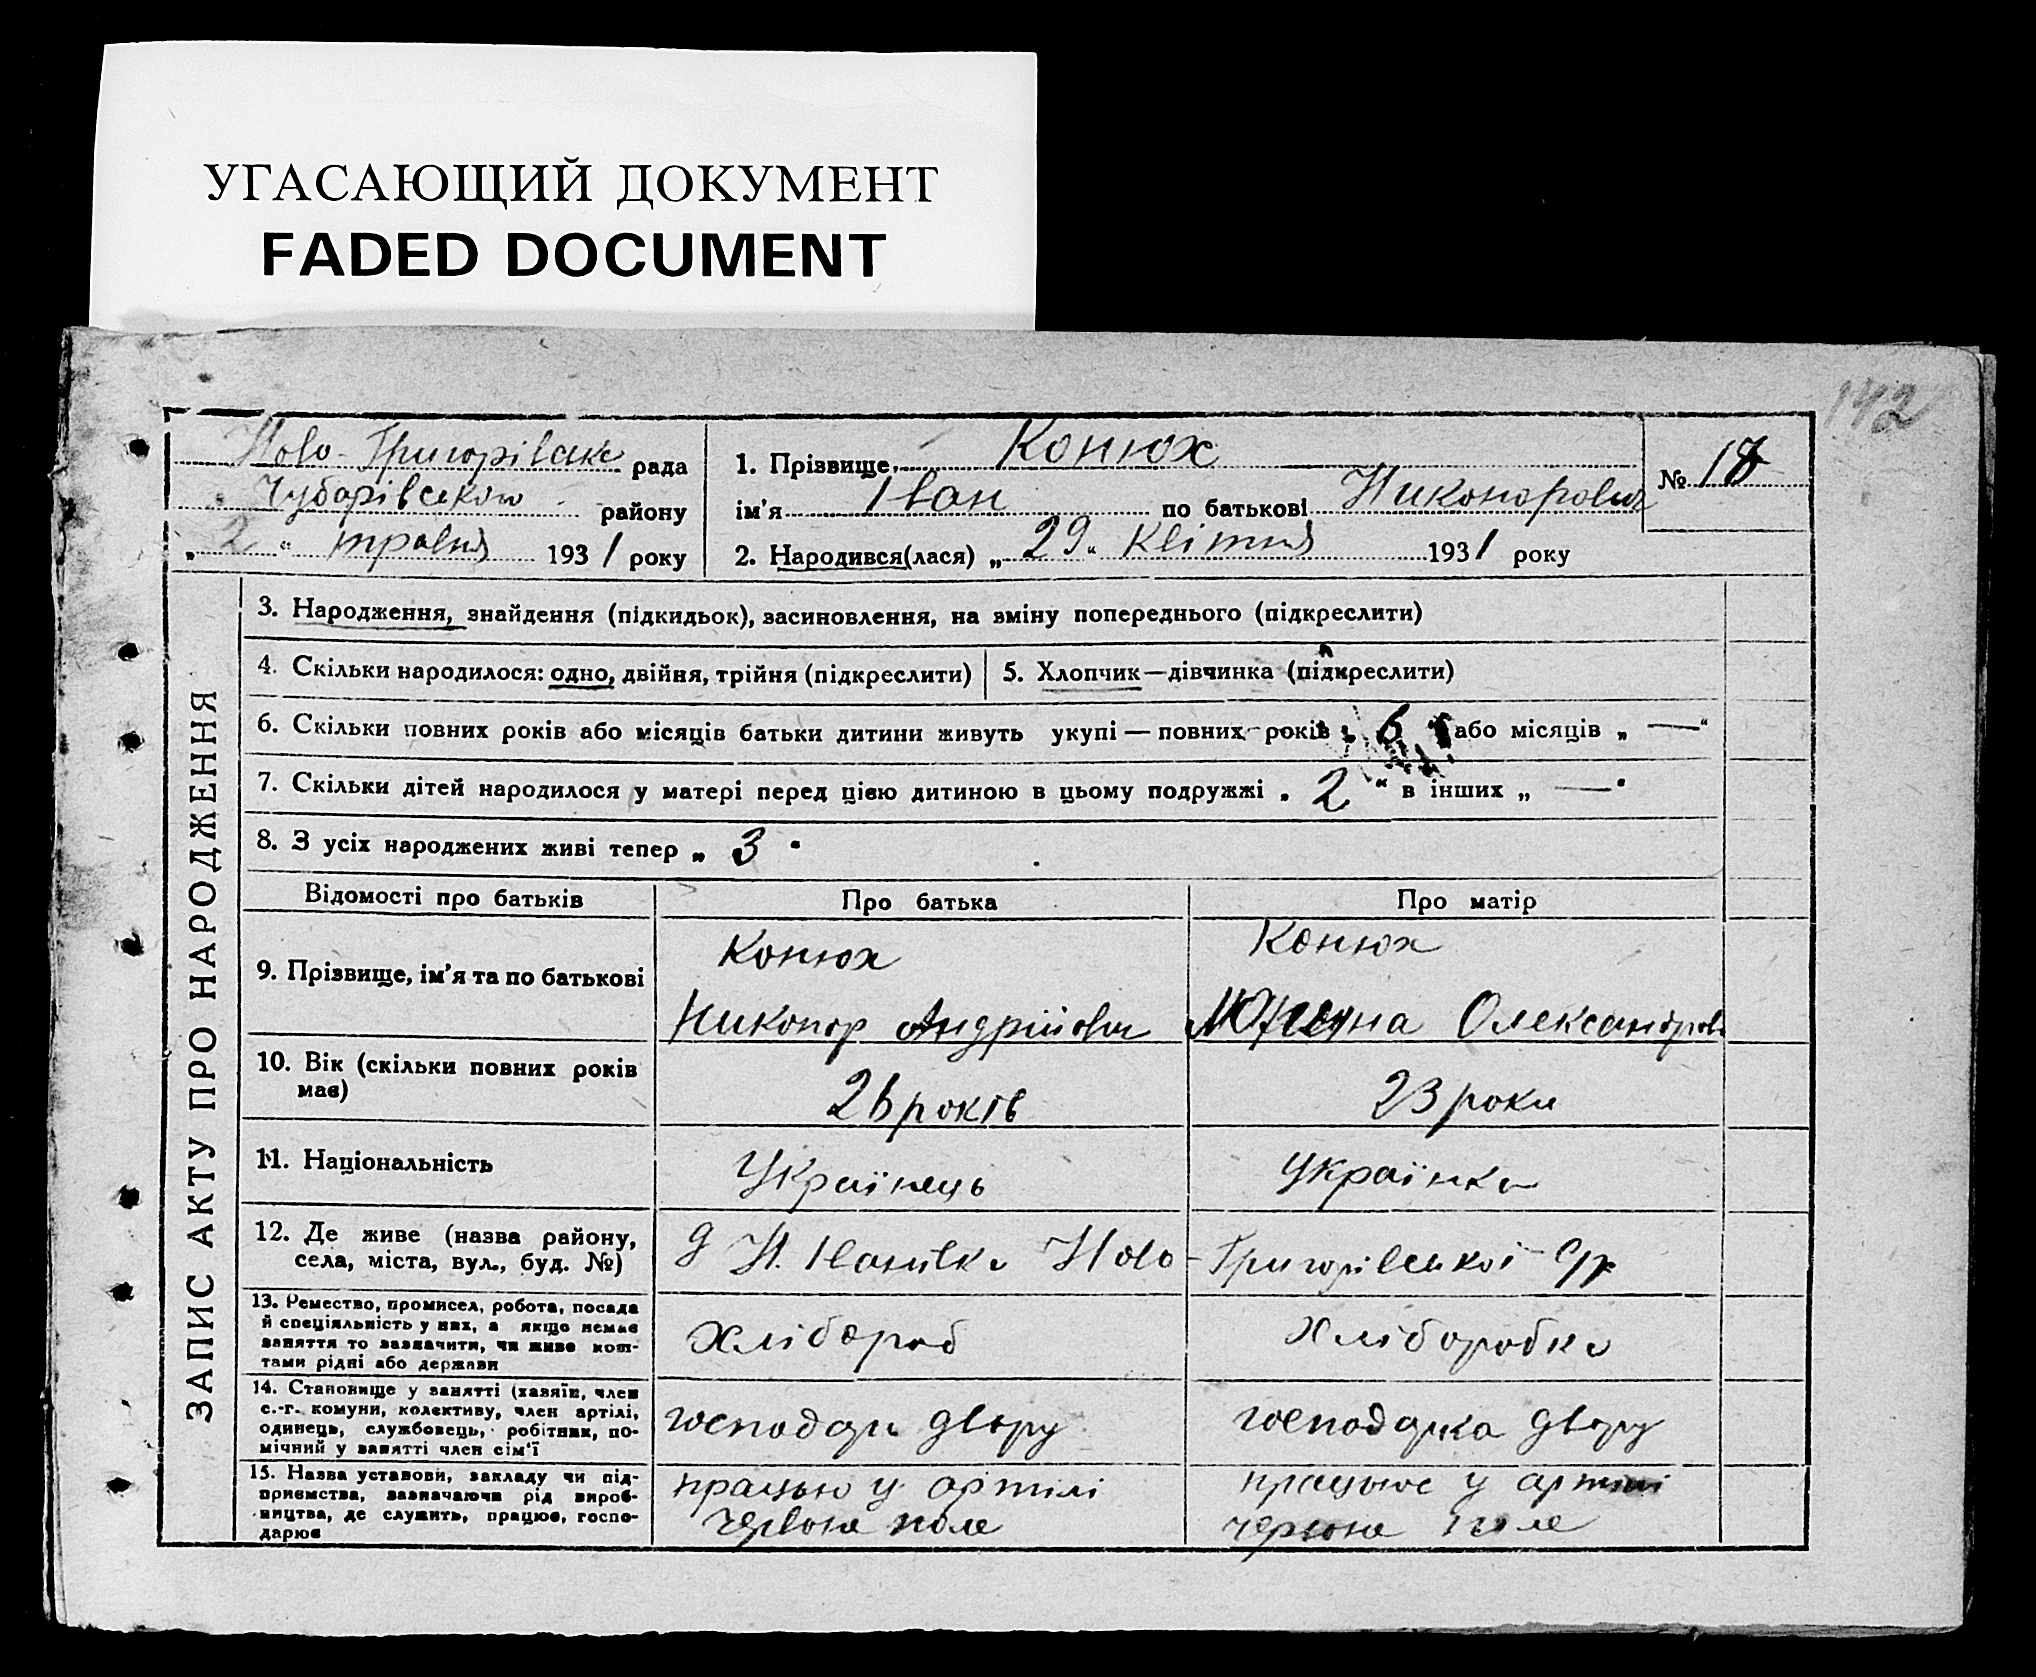 УГАСАЮЩИЙ ДОКУМЕНТ
FADED DOCUMENT
142
Ново-Григорівська рада
Чубарівського району
„ 2 “ травня 1931 року
1. Прізвище Конюх
ім'я Іван по батькові Никонорович
2. Народився(лася) „ 29 “ Квітня 1931 року
№ 18
ЗАПИС АКТУ ПРО НАРОДЖЕННЯ
3. Народження, знайдення (підкидьок), засиновлення, на зміну попереднього (підкреслити)
4. Скільки народилося: одно, двійня, трійня (підкреслити)
5. Хлопчик—дівчинка (підкреслити)
6. Скільки повних років або місяців батьки дитини живуть укупі — повних років „ 6 “ або місяців „ — “
7. Скільки дітей народилося у матері перед цією дитиною в цьому подружжі „ 2 “ в інших „ — “
8. З усіх народжених живі тепер „ 3 “
Відомості про батьків Про батька Про матір
9. Прізвище, ім'я та по батькові
Конюх
Никонор Андрійович
Конюх
Олександров
10. Вік (скільки повних років
має)
26 років
23 роки
11. Національність
Українець
Українка
12. Де живе (назва району,
села, міста, вул., буд. №)
Н. Іванівка Ново-Григорівської с/р
13. Ремество, промисел, робота, посада
й спеціяльність у них, а якщо немає
заняття то зазначити, чи живе кош-
тами рідні або держави
Хлібороб
Хліборобка
14. Становище у занятті (хазяїн, член
с.-г. комуни, колективу, член артілі,
одинець, службовець, робітник, по-
мічний у занятті член сім'ї
господар двору
господарка двору
15. Назва установи, закладу чи під-
приємства, зазначаючи рід вироб-
ництва, де служить, працює, госпо-
дарює
працює у артілі
червоне поле
працює у артілі
червоне поле